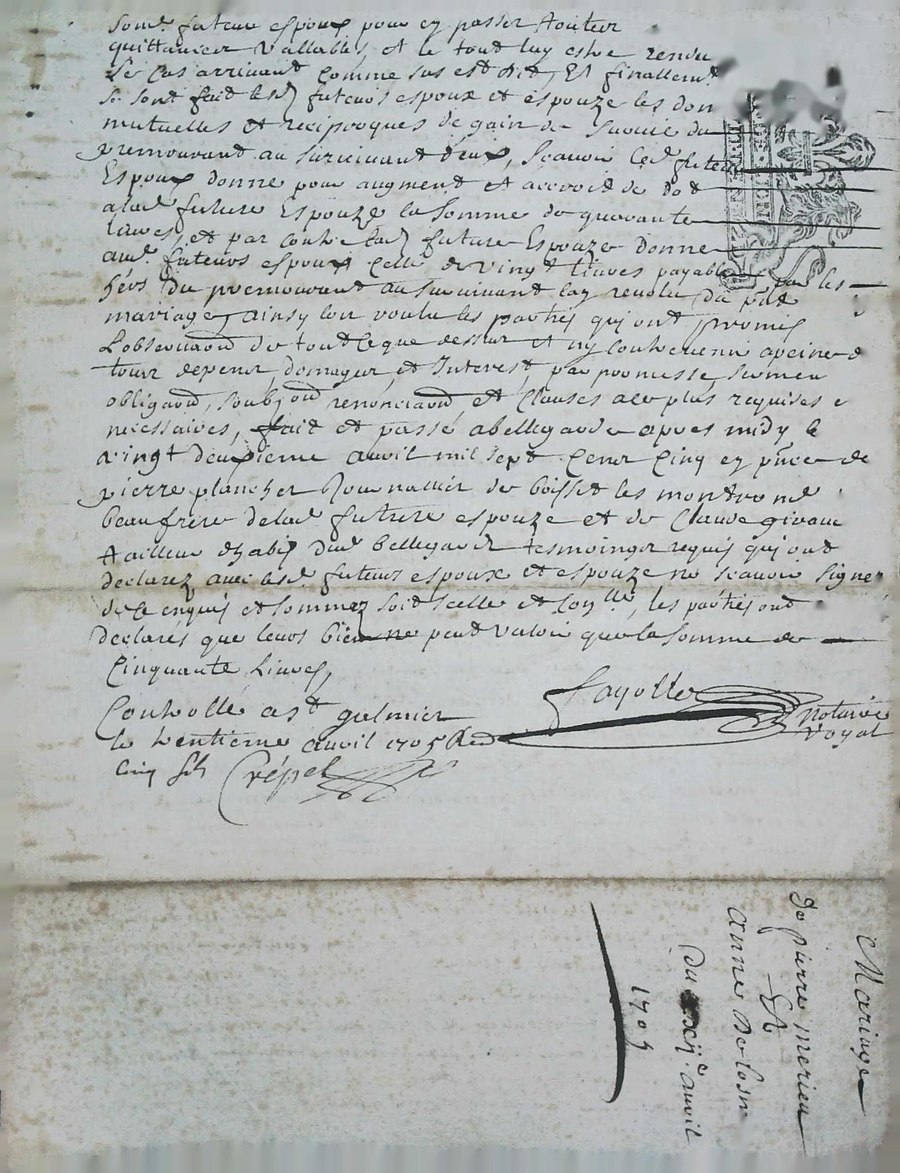 futeur espoux pour en passer
quittances vallables, et le tout luy estre rendu
le cas arrivant comme sus est dit, Et finallemt
se sont fait lesd futeurs espoux et espouze les don
mutuelles et reciproques de gain de survie du
premourant au survivant deux, scavoir led futeu
Espoux donne pour augment et accroit de dot
a lad future Espouze la somme de quarante
livres, et par contre lad future Espouze donne
aud futeurs espoux celle de vingt livres payable par les
hers du premourant au survivant lay revolu du pnt
mariage, ainsy lon voulu les parties qui ont promis
Lobservaon de tout ce que dessus et ny contrevenir a peine de
tous depens domages et Interest, par promesse serment
obligaon, soubzon renonciaon, et clauses a ce plus requises e
necessaires, fait et passé a bellegarde apres midy le
vingt deuxieme avril mil sept cent cinq en pnce de
pierre plancher Journallier de boisset les montrond
beaufrere de lad future espouze et de Claude giraud
tailleur dhabis dud bellegarde tesmoings requis qui ont
declarez avec lesd futeurs espoux et espouze ne scavoir signer
de ce enquis et sommez soit scellé et conllé, les parties ont
declarés que leurs biens ne peut valoir que la somme de
Cinquante Livres,
Fayolle
Notaire
Royal
Controllé a st galmier
le trentieme avril 1705 Red
cinq sols Crépet
Mariage
de pierre merieu
Et
anne
du avril
1705